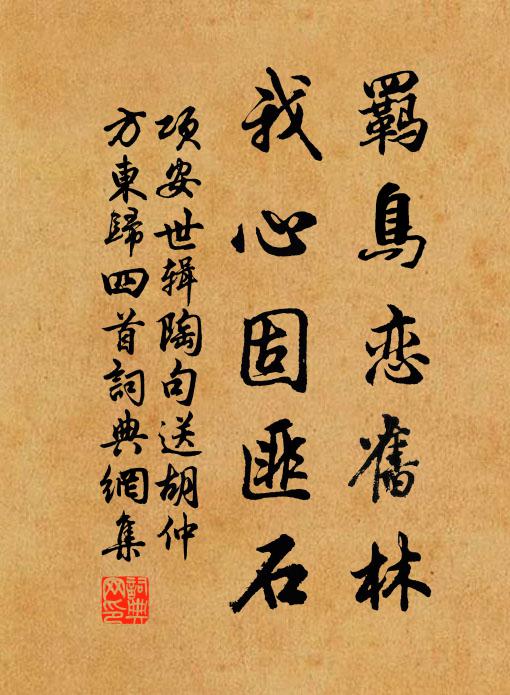 羈鳥恋舊林
我心固匪石
項安世輯陶句送胡仲
方東歸四首詞典網集
詞典网印